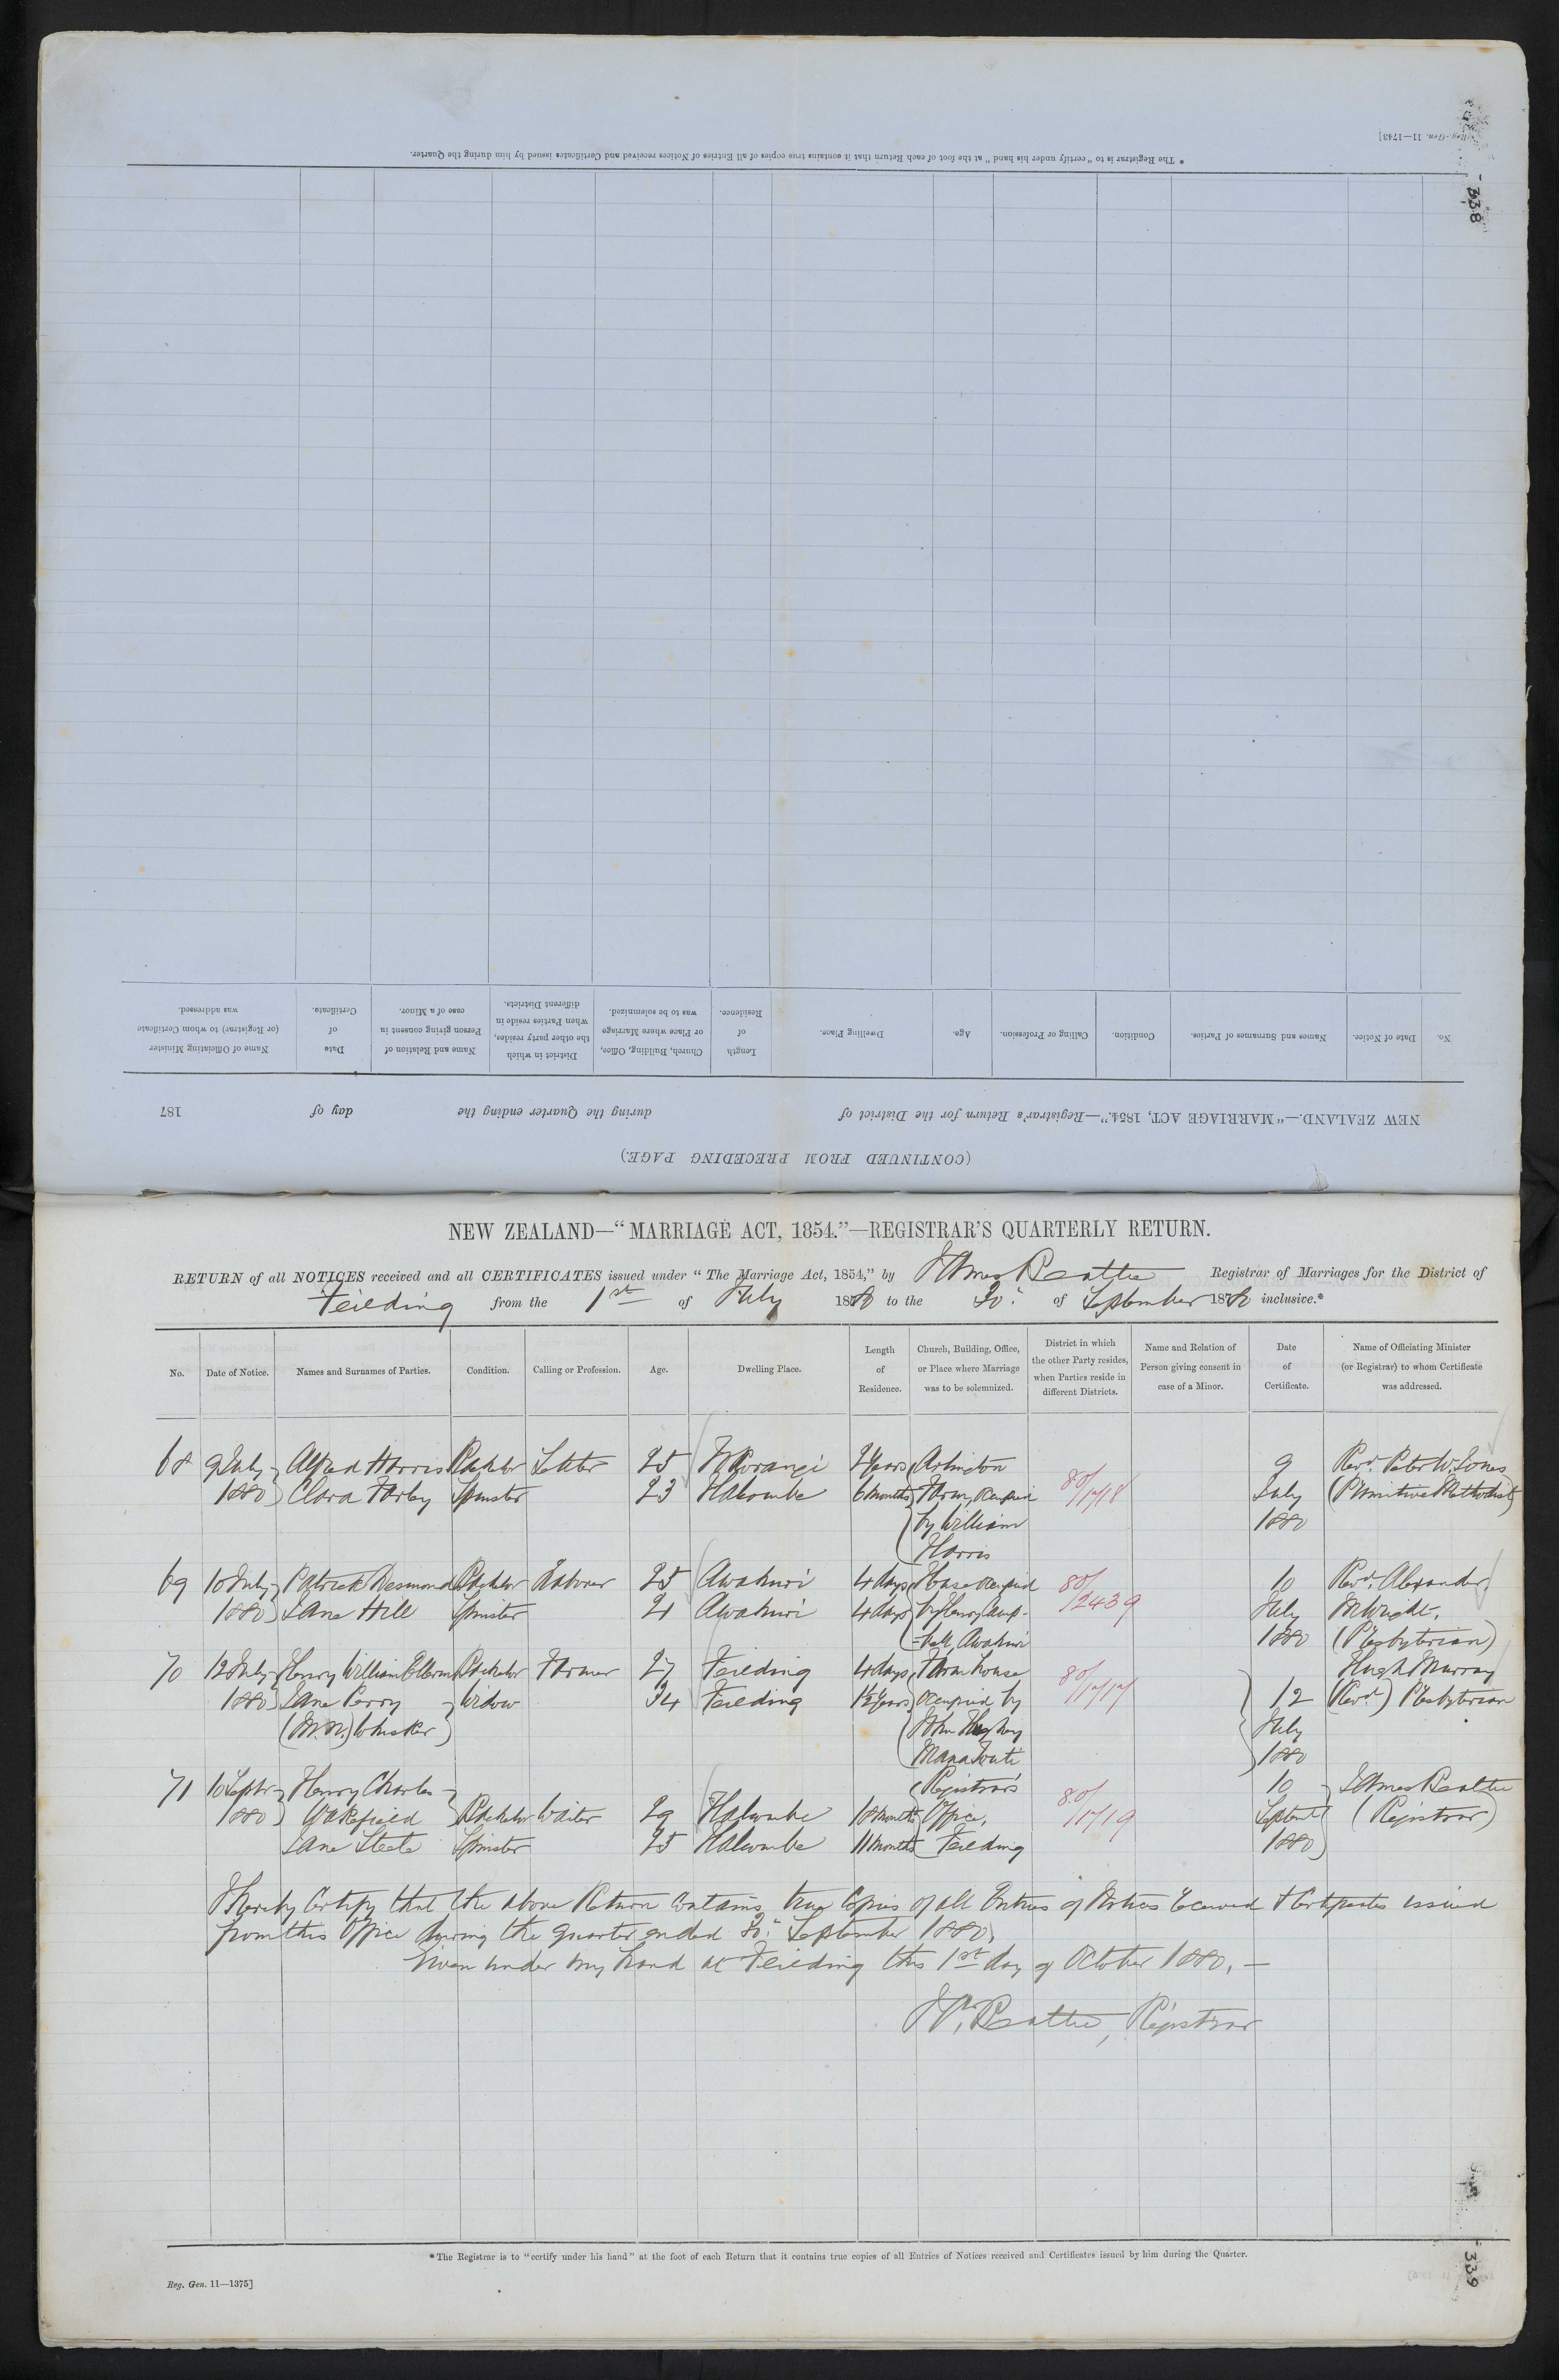 Reg. Gen. 11—1743]
* The Registrar is to "certify under his hand" at the foot of each Return that it contains true copies of all Entries of Notices received and Certificates issued by him during the Quarter.
338
(CONTINUED FROM PRECEDING PAGE.)
NEW ZEALAND.—"MARRIAGE ACT, 1854."—Registrar's Return for the District of during the Quarter ending the day of 187
No. Date of Notice. Names and Surnames of Parties. Condition. Calling or Profession. Age. Dwelling Place. Length of Residence. Church, Building, Office, or Place where Marriage was to be solemnized. District in which the other party resides, when Parties reside in different Districts. Name and Relation of Person giving consent in case of a Minor. Date of Certificate. Name of Officiating Minister (or Registrar) to whom Certificate was addressed.
NEW ZEALAND—"MARRIAGE ACT, 1854."—REGISTRAR'S QUARTERLY RETURN.
RETURN of all NOTICES received and all CERTIFICATES issued under "The Marriage Act, 1854," by James Beattie Registrar of Marriages for the District of
Feilding from the 1st of July 1880 to the 30. of September 1880 inclusive.*
No. Date of Notice. Names and Surnames of Parties. Condition. Calling or Profession. Age. Dwelling Place. Length of Residence. Church, Building, Office, or Place where Marriage was to be solemnized. District in which the other Party resides, when Parties reside in different Districts. Name and Relation of Person giving consent in case of a Minor. Date of Certificate. Name of Officiating Minister (or Registrar) to whom Certificate was addressed.
68 9 July Alfred Harris Bachelor Settler 25 2 Years 9 Revd. Peter W. Jones
1880 Clara Bachelor Spinster 23 Halcombe 6 months Farm, occupied 80/1718 July (Primitive Methodist)
by William 1880
Harris
69 10 July Patrick Desmond Bachelor Laborer 25 Awahuri 4 days House occupied 80/2439 10 Revd. Alexander
1880 Jane Hill Spinster 21 Awahuri 4 days by Henry Camp- July M. Wright,
-bell, Awahuri 1880 (Presbyterian)
70 12 July Henry William Bachelor Farmer 27 Feilding 4 days Farm house 80/1717 Hugh Murray
1880 Jane Perry Widow 34 Feilding 1½ Years occupied by 12 (Revd.) Presbyterian
(M.N.) Whisker John July
1880
71 10 Septbr Henry Charles Registrar's 80/1719 10 James Beattie
1880 Wakefield Bachelor Waiter 29 Halcombe 18 months Office, Septembr (Registrar)
Jane Steele Spinster 25 Halcombe 11 months Feilding 1880
I hereby Certify that the above Return contains true Copies of all Entries of Notices received & Certificates issued
from this Office during the quarter ended 30. September 1880,
Given under my hand at Feilding this 1st day of October 1880,—
Jas. Beattie, Registrar
* The Registrar is to "certify under his hand" at the foot of each Return that it contains true copies of all Entries of Notices received and Certificates issued by him during the Quarter.
Reg. Gen. 11—1375]
339